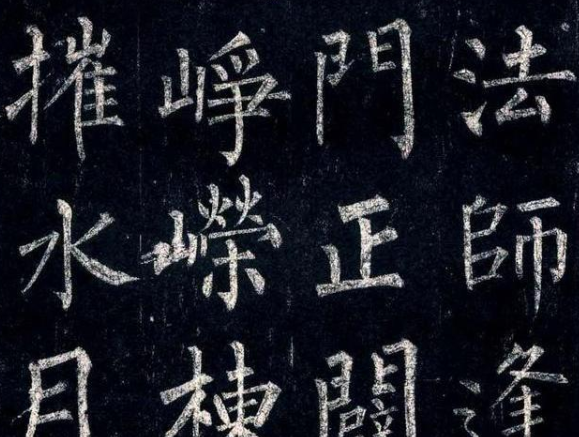 法師逢
門正闢
崢嶸棟
摧水月